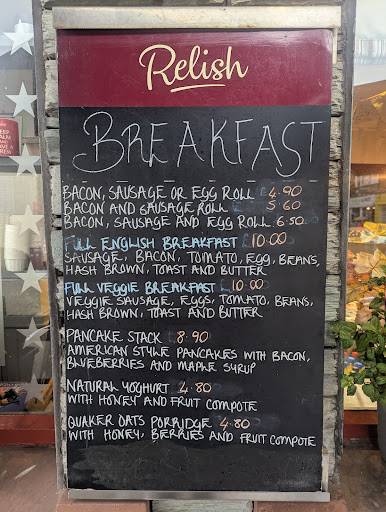 Relish
BREAKFAST
BACON, SAUSAGE OR EGG ROLL £4.90
BACON AND SAUSAGE ROLL £5.60
BACON, SAUSAGE AND EGG ROLL 6.50
FULL ENGLISH BREAKFAST £10.00
SAUSAGE, BACON, TOMATO, EGG, BEANS,
HASH BROWN, TOAST AND BUTTER
FULL VEGGIE BREAKFAST £10.00
VEGGIE SAUSAGE, EGGS, TOMATO, BEANS,
HASH BROWN, TOAST AND BUTTER
PANCAKE STACK £8.90
AMERICAN STYLE PANCAKES WITH BACON,
BLUEBERRIES AND MAPLE SYRUP
NATURAL YOGHURT 4.80
WITH HONEY AND FRUIT COMPOTE
QUAKER OATS PORRIDGE 4.80
WITH HONEY, BERRIES AND FRUIT COMPOTE